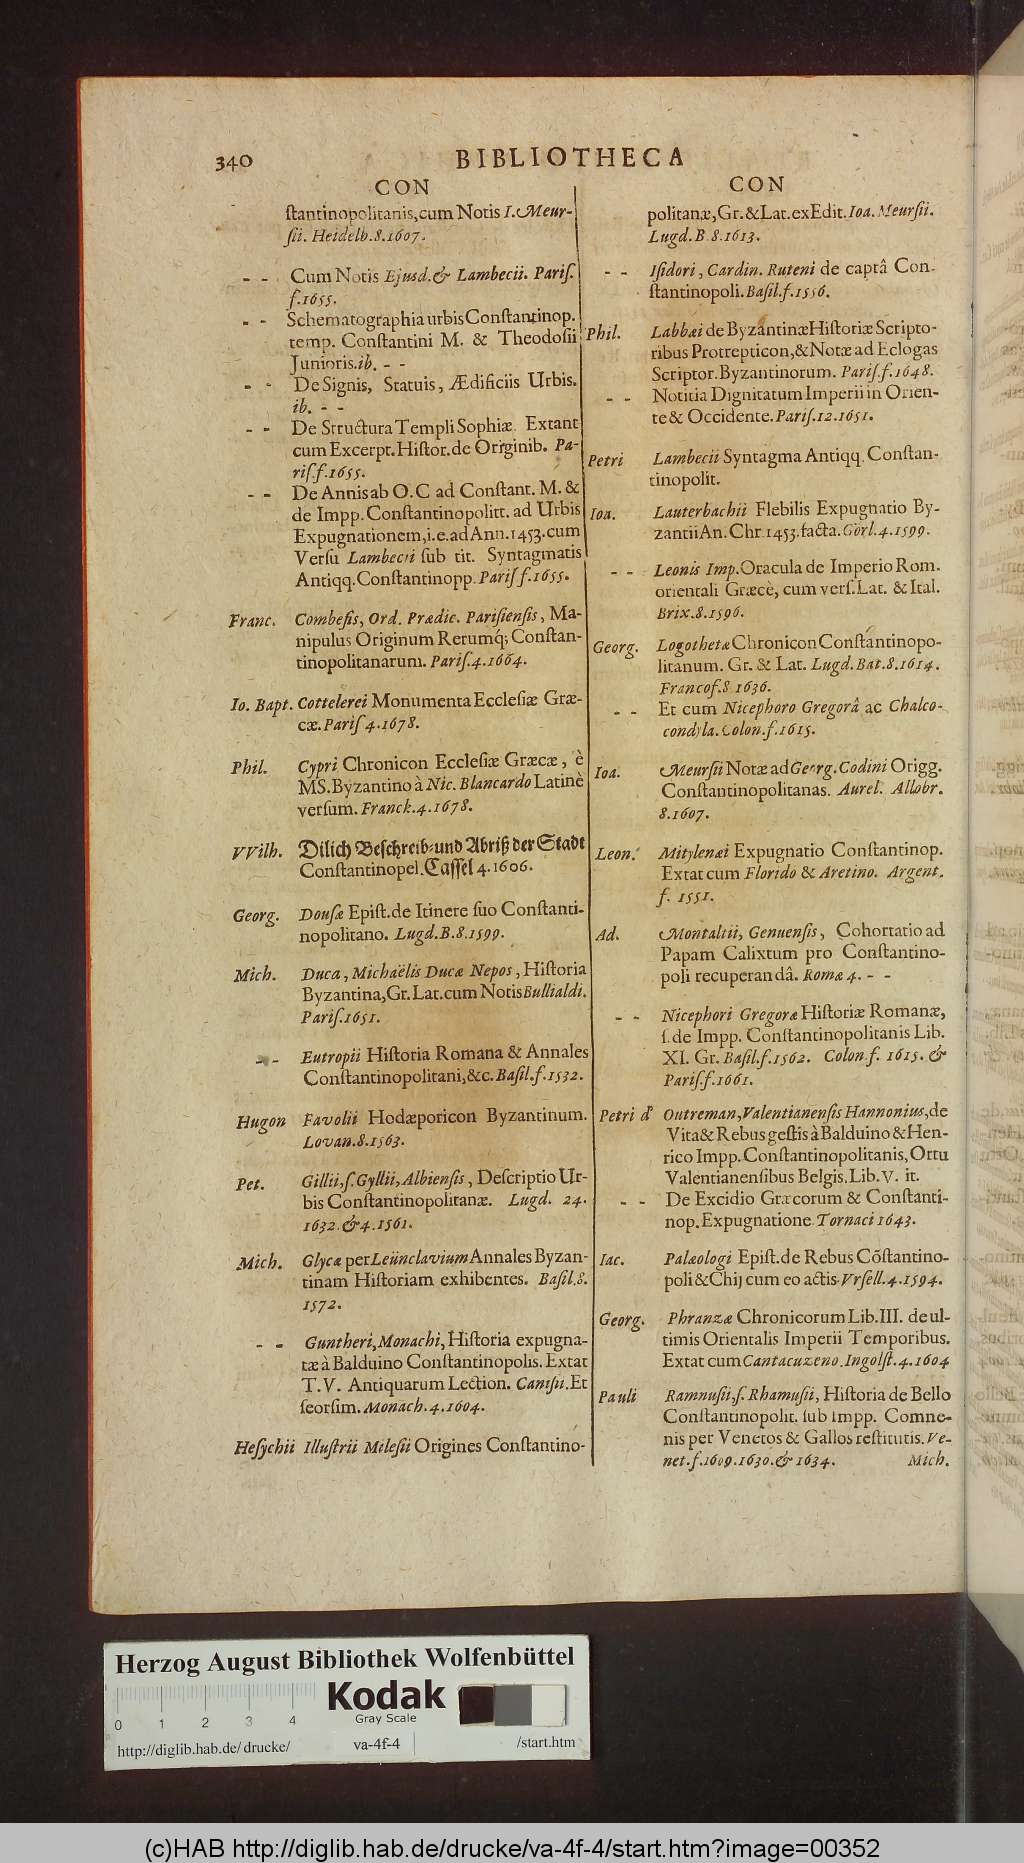 340 BIBLIOTHECA
CON
ſtantinopolitanis, cum Notis I. Meur-
ſii. Heidelb. 8. 1607.
- - Cum Notis Ejusd. & Lambecii. Pariſ.
f. 1655.
- - Schematographia urbis Constantinop.
temp. Conſtantini M. & Theodoſii
Junioris. ib. - -
- - De Signis, Statuis, Ædificiis Urbis.
ib. - -
- - De Structura Templi Sophiæ. Extant
cum Excerpt. Hiſtor. de Originib. Pa-
riſ. f. 1655.
- - De Annis ab O. C ad Conſtant. M. &
de Impp. Conſtantinopolitt. ad Urbis
Expugnationem, i. e. ad Ann. 1453. cum
Verſu Lambecii ſub tit. Syntagmatis
Antiqq. Conſtantinopp. Pariſ f. 1655.
Franc. Combefis, Ord. Prædic. Pariſienſis, Ma-
nipulus Originum Rerumq́; Conſtan-
tinopolitanarum. Pariſ. 4. 1664.
Io. Bapt. Cottelerei Monumenta Eccleſiæ Græ-
cæ. Pariſ 4. 1678.
Phil. Cypri Chronicon Eccleſiæ Græcæ, è
MS. Byzantino à Nic. Blancardo Latinè
verſum. Franck. 4. 1678.
VVilh. Dilich Beſchreib- und Abriß der Stadt
Conſtantinopel. Caſſel 4. 1606.
Georg. Douſæ Epiſt. de Itinere ſuo Conſtanti-
nopolitano. Lugd. B. 8. 1599.
Mich. Duca, Michaëlis Ducæ Nepos, Hiſtoria
Byzantina, Gr. Lat. cum Notis Bullialdi.
Pariſ. 1651.
- - Eutropii Hiſtoria Romana & Annales
Conſtantinopolitani, &c. Baſil. f. 1532.
Hugon Favolii Hodæporicon Byzantinum.
Lovan. 8. 1563.
Pet. Gillii, ſ. Gyllii, Albienſis, Deſcriptio Ur-
bis Conſtantinopolitanæ. Lugd. 24.
1632. & 4. 1561.
Mich. Glycæ per Leünclavium Annales Byzan-
tinam Hiſtoriam exhibentes. Baſil. 8.
1572.
- - Guntheri, Monachi, Hiſtoria expugna-
tæ à Balduino Conſtantinopolis. Extat
T. V. Antiquarum Lection. Caniſii. Et
ſeorſim. Monach. 4. 1604.
Heſychii Illuſtrii Mileſii Origines Conſtantino-
CON
politanæ, Gr. & Lat. ex Edit. Ioa. Meurſii.
Lugd. B. 8. 1613.
- - Iſidori, Cardin. Ruteni de captâ Con-
ſtantinopoli. Baſil. f. 1556.
Phil. Labbæi de Byzantinæ Hiſtoriæ Scripto-
ribus Protrepticon, & Notæ ad Eclogas
Scriptor. Byzantinorum. Pariſ. f. 1648.
- - Notitia Dignitatum Imperii in Orien-
te & Occidente. Pariſ. 12. 1651.
Petri Lambecii Syntagma Antiqq. Conſtan-
tinopolit.
Ioa. Lauterbachii Flebilis Expugnatio By-
zantii An. Chr. 1453. facta. Görl. 4. 1599.
- - Leonis Imp. Oracula de Imperio Rom.
orientali Græcè, cum verſ. Lat. & Ital.
Brix. 8. 1596.
Georg. Logothetæ Chronicon Conſtantinopo-
litanum. Gr. & Lat. Lugd. Bat. 8. 1614.
Francof. 8 1636.
- - Et cum Nicephoro Gregorâ ac Chalco-
condyla. Colon. f. 1615.
Ioa. Meurſii Notæ ad Georg. Codini Origg.
Conſtantinopolitanas. Aurel. Allobr.
8. 1607.
Leon. Mitylenæi Expugnatio Conſtantinop.
Extat cum Florido & Aretino. Argent.
f. 1551.
Ad. Montaltii, Genuenſis, Cohortatio ad
Papam Calixtum pro Conſtantino-
poli recuperandâ. Romæ 4. - -
- - Nicephori Gregoræ Hiſtoriæ Romanæ,
ſ. de Impp. Conſtantinopolitanis Lib.
XI. Gr. Baſil. f. 1562. Colon. f. 1615. &
Pariſ. f. 1661.
Petri d' Outreman, Valentianenſis Hannonius, de
Vita & Rebus geſtis à Balduino & Hen-
rico Impp. Conſtantinopolitanis, Ortu
Valentianenſibus Belgis. Lib. V. it.
- - De Excidio Græcorum & Conſtanti-
nop. Expugnatione. Tornaci 1643.
Iac. Palæologi Epiſt. de Rebus Cõſtantino-
poli & Chij cum eo actis. Vrſell. 4. 1594.
Georg. Phranzæ Chronicorum Lib. III. de ul-
timis Orientalis Imperii Temporibus.
Extat cum Cantacuzeno. Ingolſt. 4. 1604
Pauli Ramnuſii, ſ. Rhamuſii, Hiſtoria de Bello
Conſtantinopolit. ſub Impp. Comne-
nis per Venetos & Gallos reſtitutis. Ve-
net. f. 1609. 1630. & 1634. Mich.
Herzog August Bibliothek Wolfenbüttel
Kodak
Gray Scale
0 1 2 3 4
http://diglib.hab.de/drucke/ va-4f-4 /start.htm
(c)HAB http://diglib.hab.de/drucke/va-4f-4/start.htm?image=00352